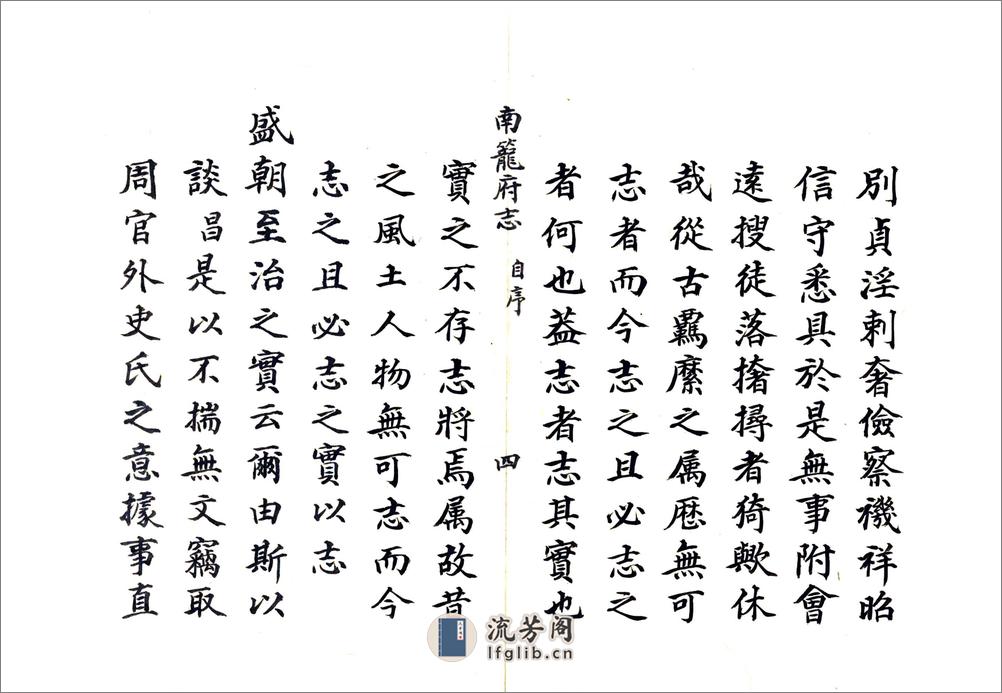 別貞淫刺奢儉察禨祥昭
信守悉具於是無事附會
遠搜徒落撦撏者猗歟休
哉從古羈縻之属歷無可
志者而今志之且必志之
者何也葢志者志其實也
南籠府志 自序 四
實之不存志將焉属故昔
之風土人物無可志而今
志之且必志之實以志
盛朝至治之實云爾由斯以
談昌是以不揣無文竊取
周官外史氏之意據事直
流芳阁
lfglib.cn